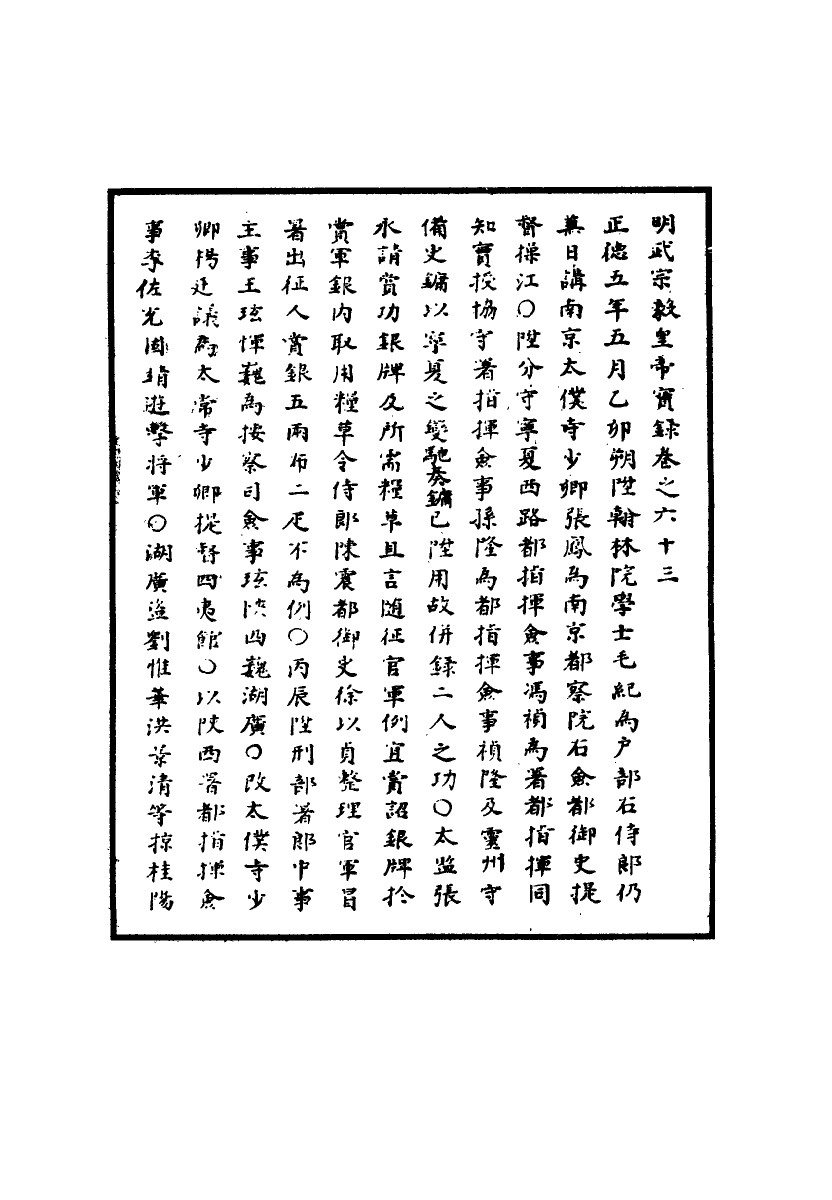 明武宗毅皇帝實錄卷之六十三
正德五年五月乙卯朔陞翰林院學士毛紀為戶部右侍郎仍
兼日講南京太僕寺少卿張鳳為南京都察院右僉都御史提
督操江○陞分守寧夏西路都指揮僉事馮禎為署都指揮同
知實授協守署指揮僉事孫隆為都指揮僉事禎隆及靈州守
備史鏞以寧夏之變馳奏鏞已陞用故併錄二人之功○太監張
永請賞功銀牌及所需糧草且言隨征官軍例宜賞詔銀牌於
賞軍銀內取用糧草令侍郎陳震都御史徐以貞整理官軍冒
暑出征人賞銀五兩布二疋不為例○丙辰陞刑部署郎中事
主事王玹惲巍為按察司僉事玹陝西巍湖廣○改太僕寺少
卿楊廷議為太常寺少卿提督四夷館○以陝西署都指揮僉
事李佐充固靖遊擊將軍○湖廣盜劉惟華洪景清等掠桂陽